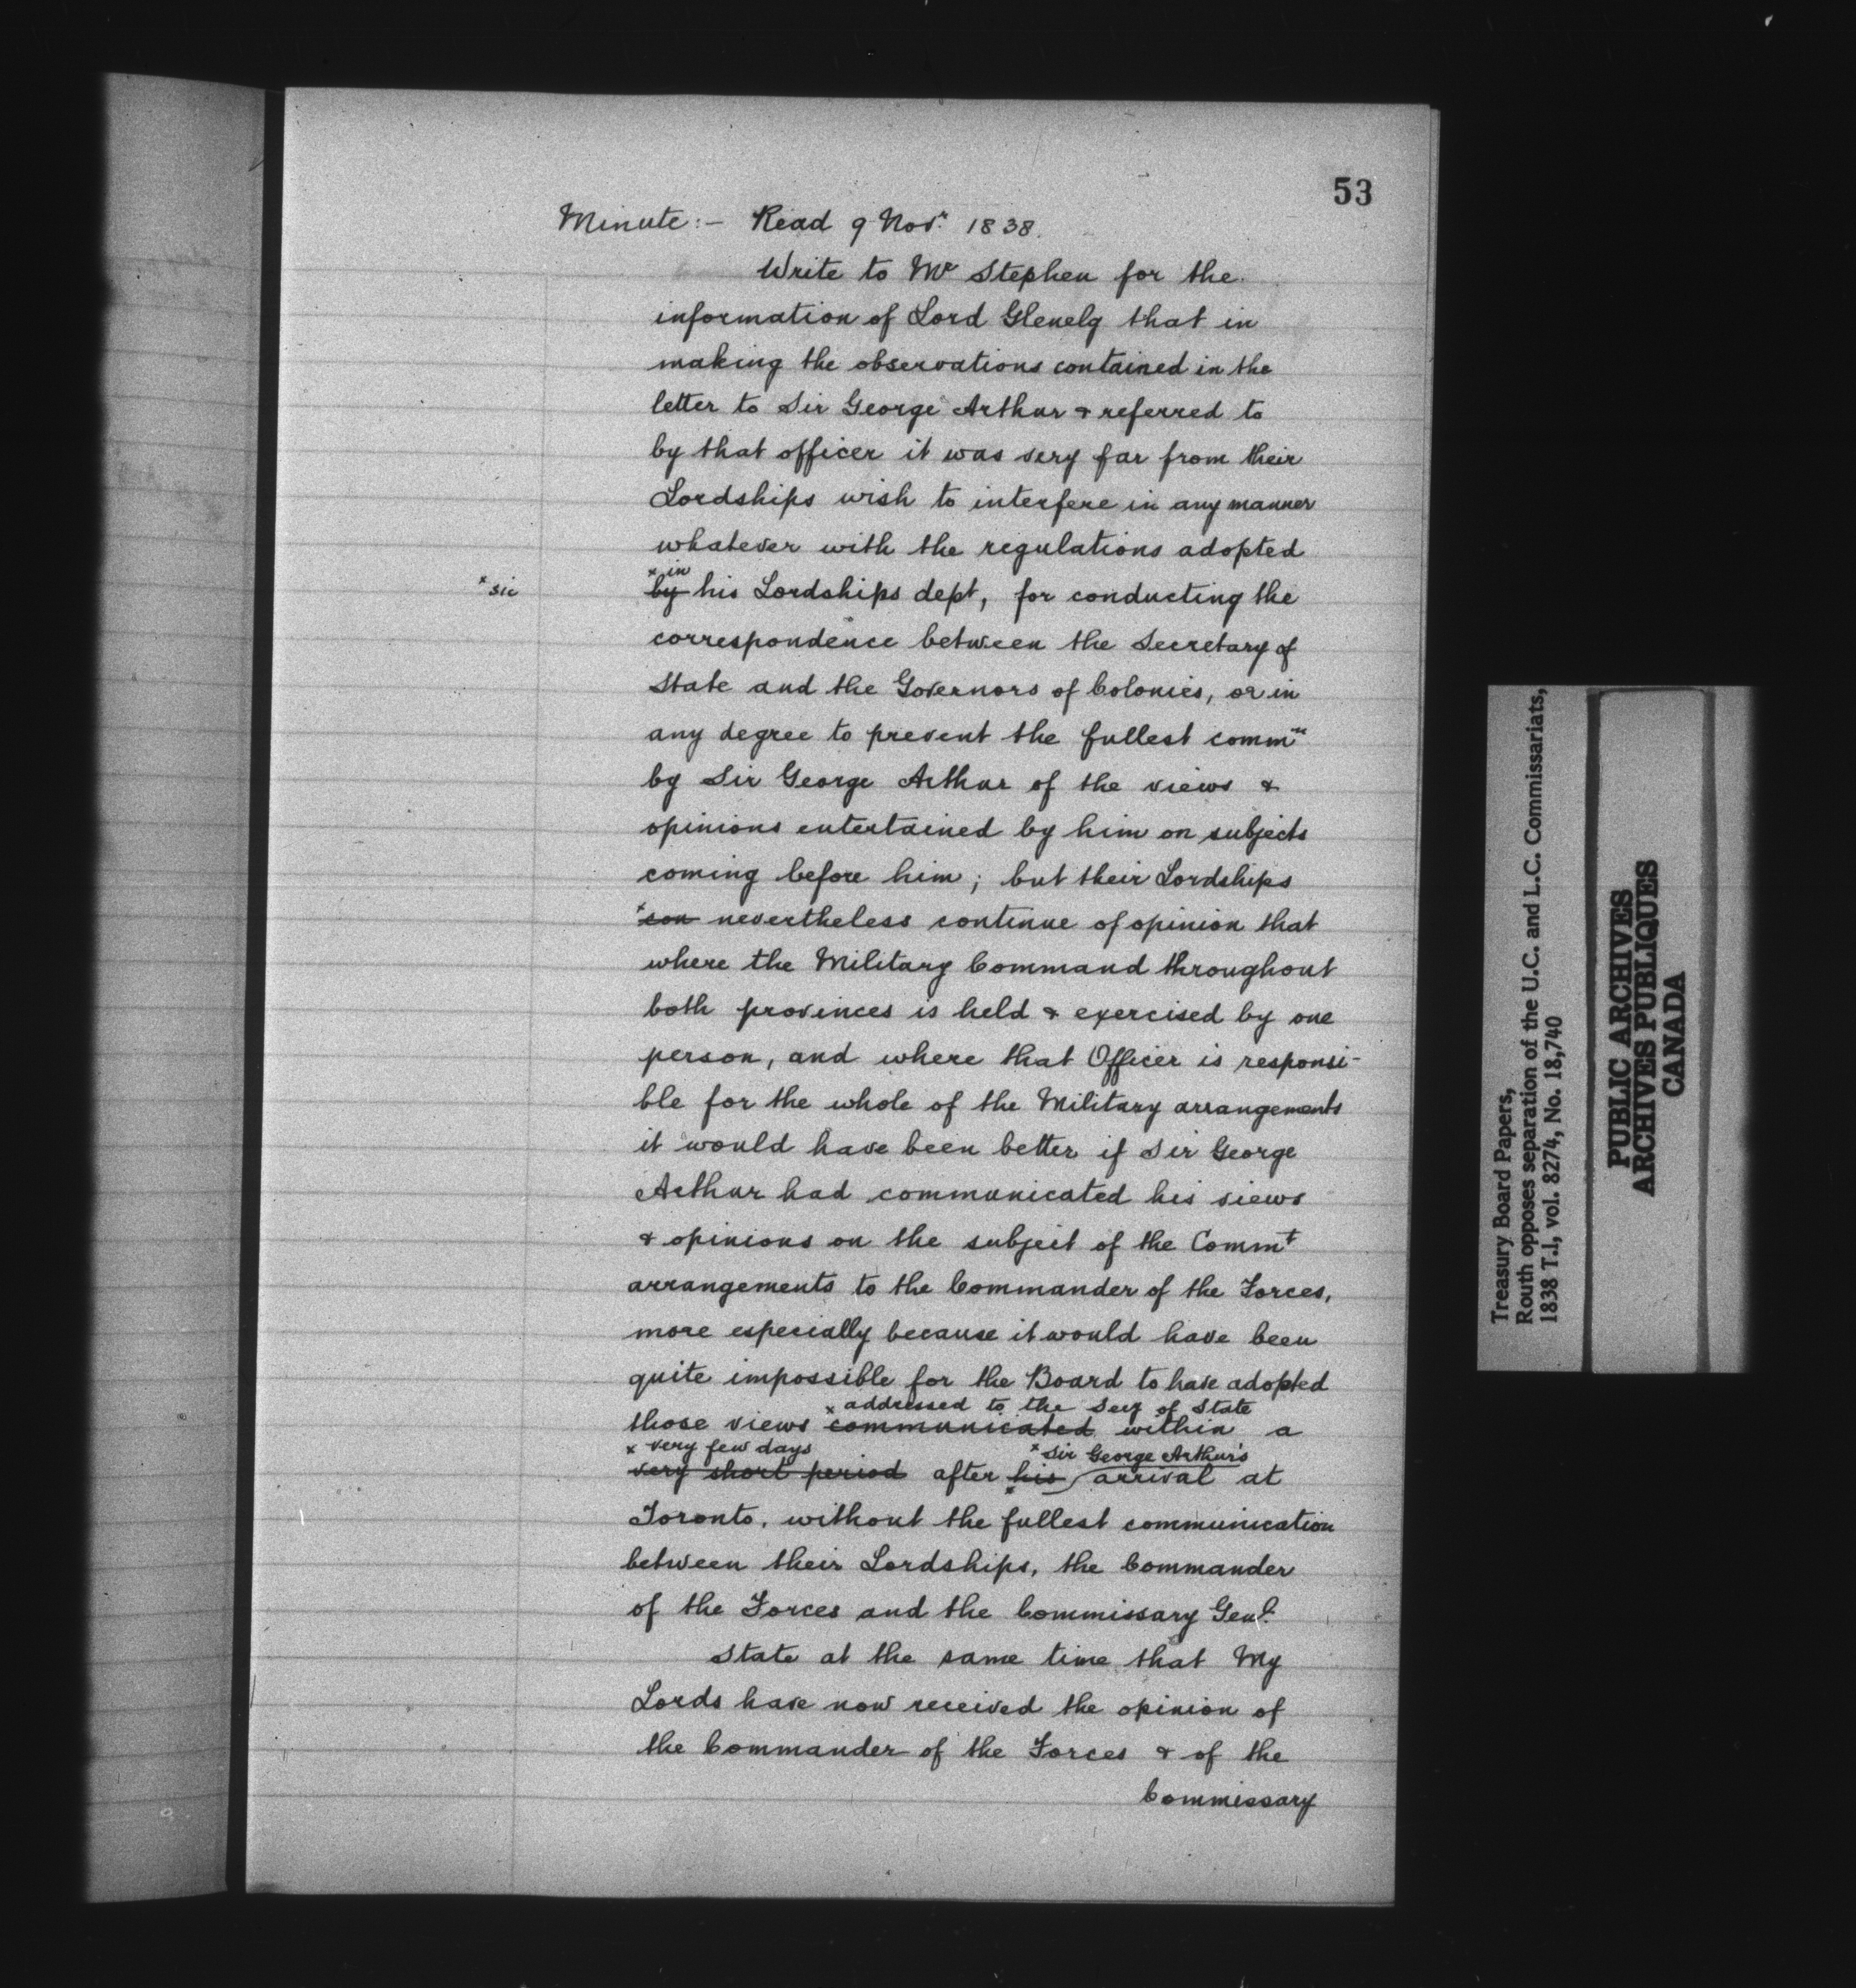 53
Minute:- Read 9 Novr 1838.
Write to Mr Stephen for the
information of Lord Glenelg that in
making the observations contained in the
letter to Sir George Arthur & referred to
by that officer it was very far from their
Lordships wish to interfere in any manner
whatever with the regulations adopted
x in
x sic
by his Lordships dept, for conducting the
correspondence between the Secretary of
State and the Governors of Colonies, or in
any degree to prevent the fullest commn
by Sir George Arthur of the views &
opinions entertained by him on subjects
coming before him; but their Lordships
x con nevertheless continue of opinion that
where the Military Command throughout
both provinces is held & exercised by one
person, and where that Officer is responsi-
ble for the whole of the Military arrangements
it would have been better if Sir George
Arthur had communicated his views
& opinions on the subject of the Commt
arrangements to the Commander of the Forces,
more especially because it would have been
quite impossible for the Board to have adopted
x addressed to the Secy of State
those views communicated within a
x very few days x Sir George Arthur's
very short period after his arrival at
Toronto, without the fullest communication
between their Lordships, the Commander
of the Forces and the Commissary Genl.
State at the same time that My
Lords have now received the opinion of
the Commander of the Forces & of the
Commissary
Treasury Board Papers,
Routh opposes separation of the U.C. and L.C. Commissariats,
1838 T.1, vol. 8274, No. 18,740
PUBLIC ARCHIVES
ARCHIVES PUBLIQUES
CANADA